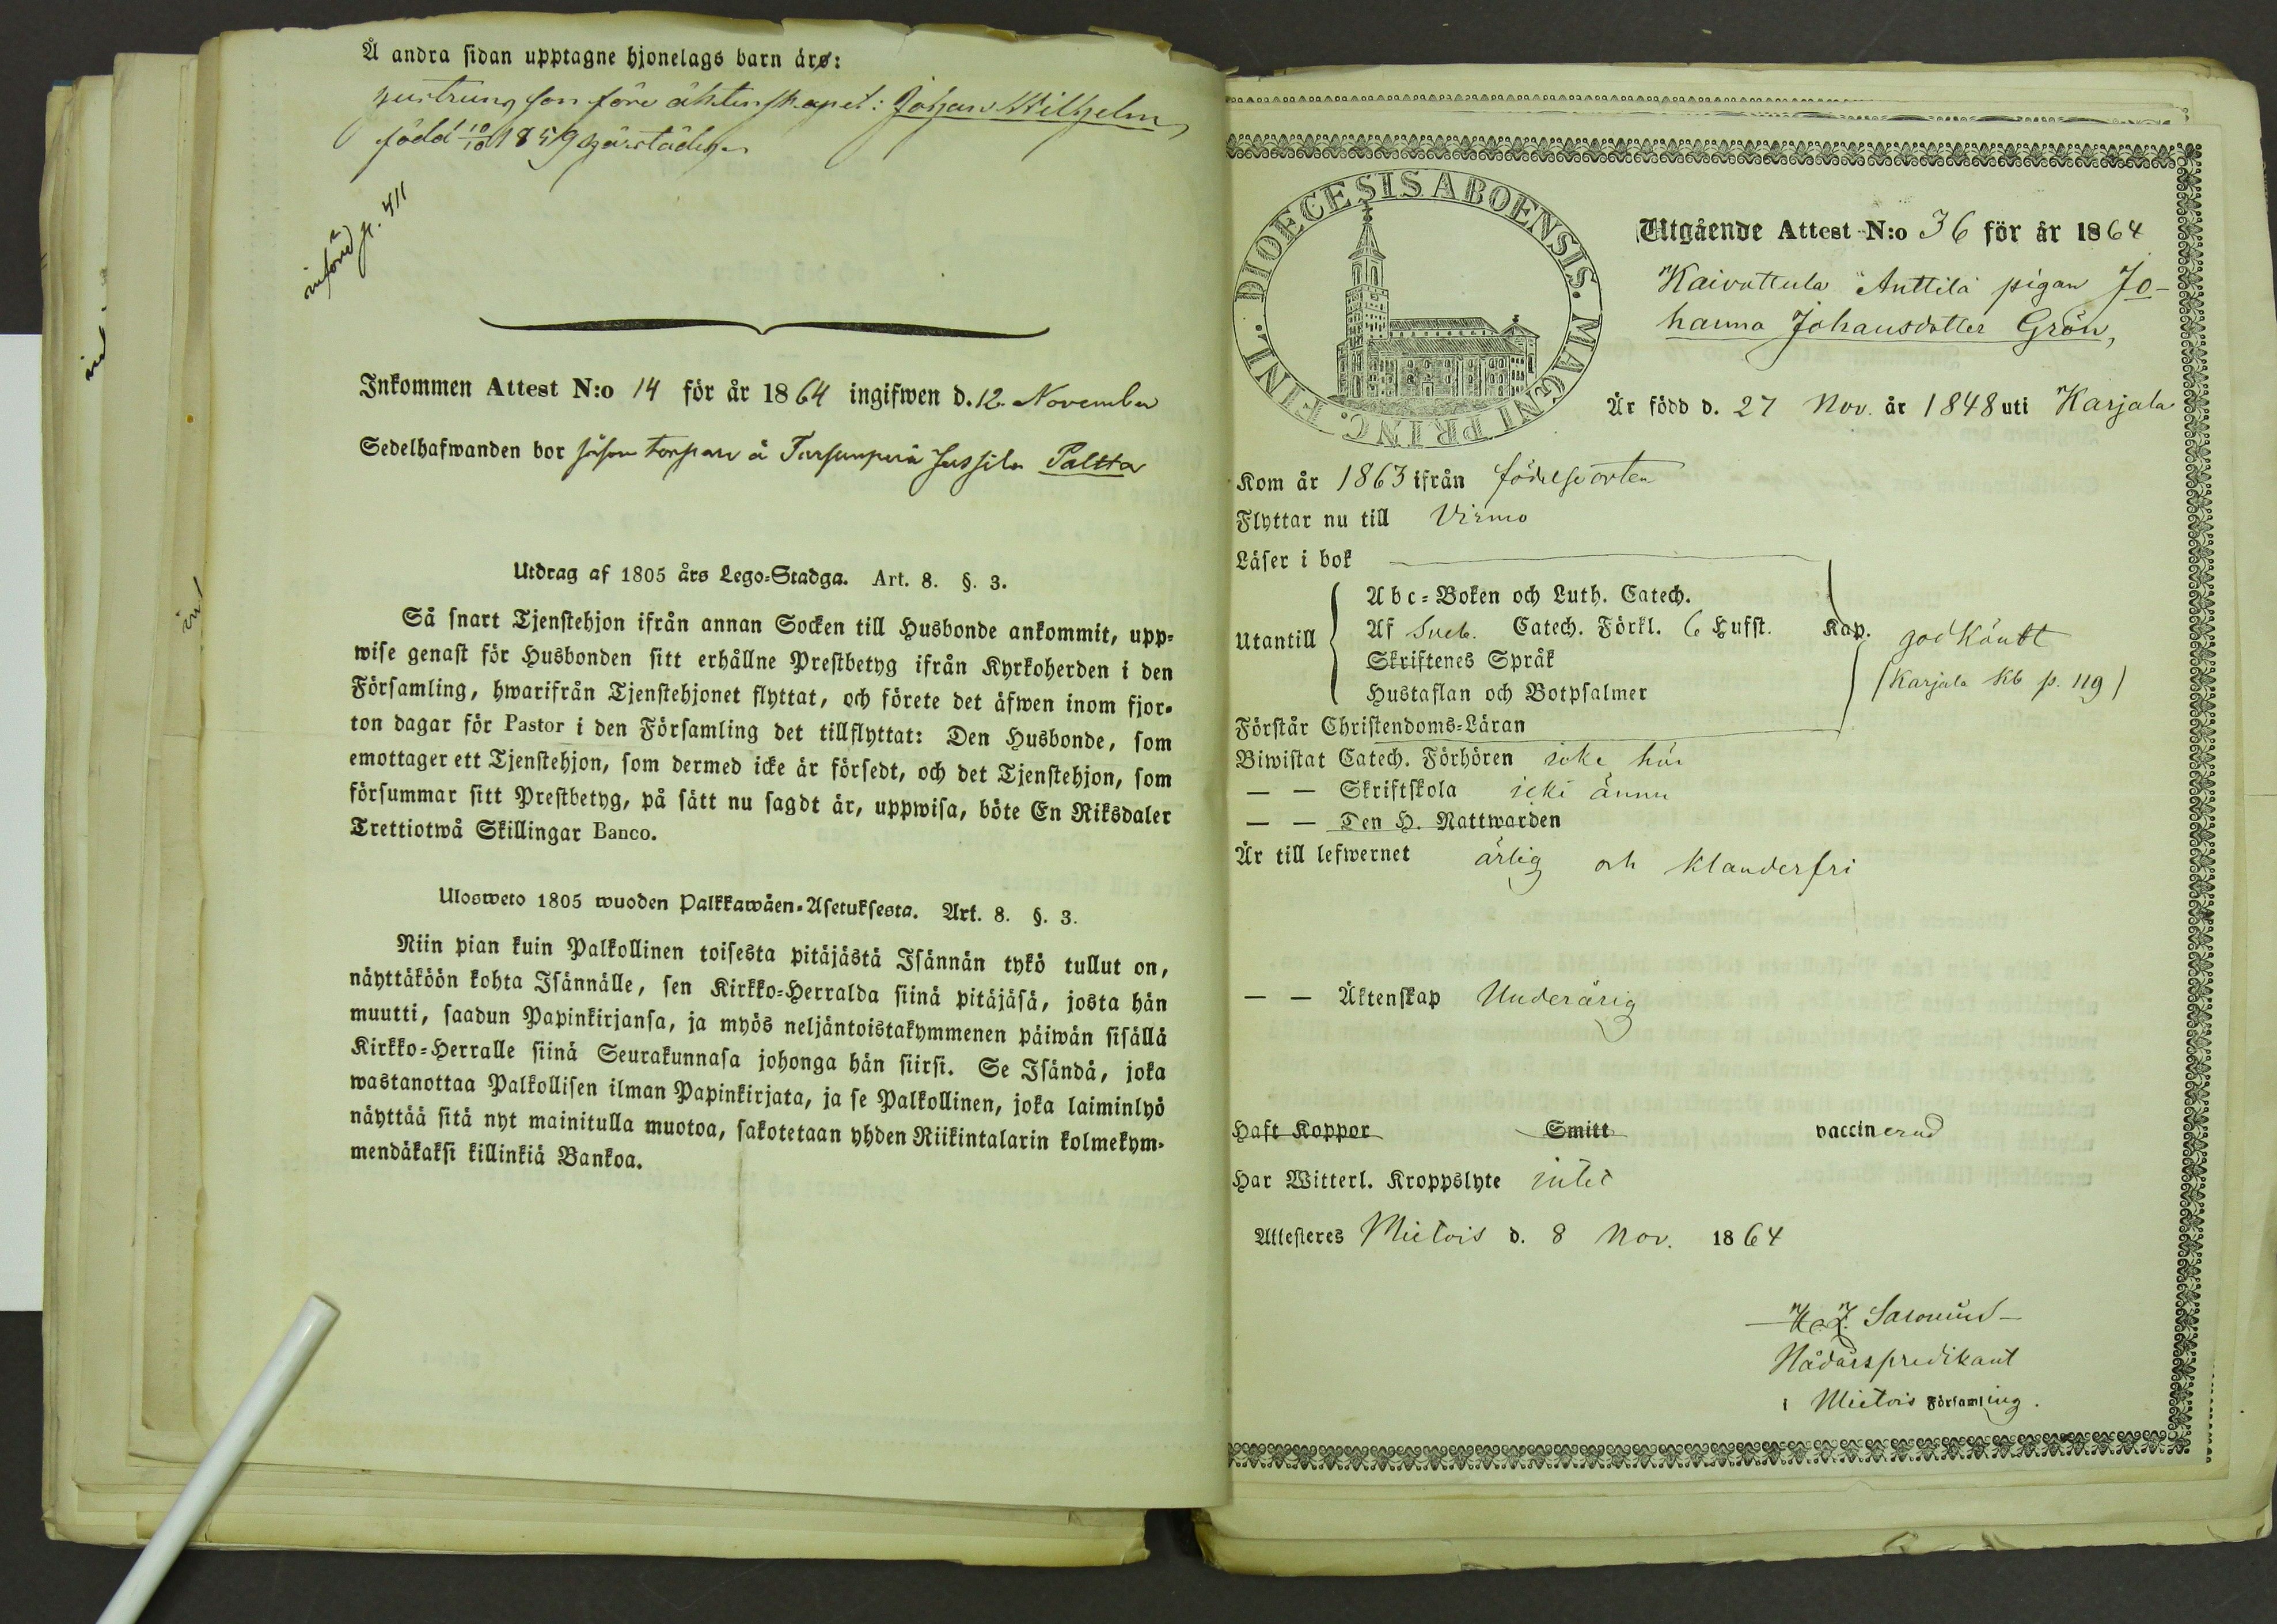 Å andra sidan upptagne hjonelags barn äro:
hustruns son före äktenskapet: Johan Wilhelm
född 10/10 1859 härstädes
införd p. 411
Inkommen Attest N:o 14 för år 1864 ingifwen d. 12 November
Sedelhafwanden bor såsom torpare å Jussila Paltta
Utdrag af 1805 års Lego-Stadga. Art. 8. §. 3.
Så snart Tjenstehjon ifrån annan Socken till Husbonde ankommit, upp-
wise genast för Husbonden sitt erhållne Prestbetyg ifrån Kyrkoherden i den
Församling, hwarifrån Tjenstehjonet flyttat, och förete det äfwen inom fjor-
ton dagar för Pastor i den Församling det tillflyttat: Den Husbonde, som
emottager ett Tjenstehjon, som dermed icke är försedt, och det Tjenstehjon, som
försummar sitt Prestbetyg, på sätt nu sagdt är, uppwisa, böte En Riksdaler
Trettiotwå Skillingar Banco.
Ulosweto 1805 wuoden Palkkawäen-Asetuksesta. Art. 8. §. 3.
Niin pian kuin Palkollinen toisesta pitäjästä Isännän tykö tullut on,
näyttäköön kohta Isännälle, sen Kirkko-Herralda siinä pitäjäsä, josta hän
muutti, saadun Papinkirjansa, ja myös neljäntoistakymmenen päiwän sisällä
Kirkko-Herralle siinä Seurakunnasa johonga hän siirsi. Se Isändä, joka
wastanottaa Palkollisen ilman Papinkirjata, ja se Palkollinen, joka laiminlyö
näyttää sitä nyt mainitulla muotoa, sakotetaan yhden Riikintalarin kolmekym-
mendäkaksi killinkiä Bankoa.
DIOECESIS ABOENSIS. MAGNI PRINC. FINL.
Utgående Attest N:o 36 för år 1864
Kaivattula Anttila pigan Jo-
hanna Johansdotter Grön,
Är född d. 27 Nov. år 1848 uti Karjala
Kom år 1863 ifrån födelseorten
Flyttar nu till Virmo
Läser i bok
Utantill
Abc-Boken och Luth. Catech.
Af Sveb. Catech. Förkl. 6 Hufst. Kap.
Skriftenes Språk
Hustaflan och Botpsalmer
godkändt
(Karjala Kb p. 119)
Förstår Christendoms-Läran
Biwistat Catech. Förhören icke här
— — Skriftskola icke ännu
— — Den H. Nattwarden
Är till lefwernet ärlig och klanderfri
— — Äktenskap Underårig
Haft Koppor Smitt vaccinerad
Har Witterl. Kroppslyte intet
Attesteres Mietois d. 8 Nov. 1864
Nådårspredikant
i Mietois Församling.